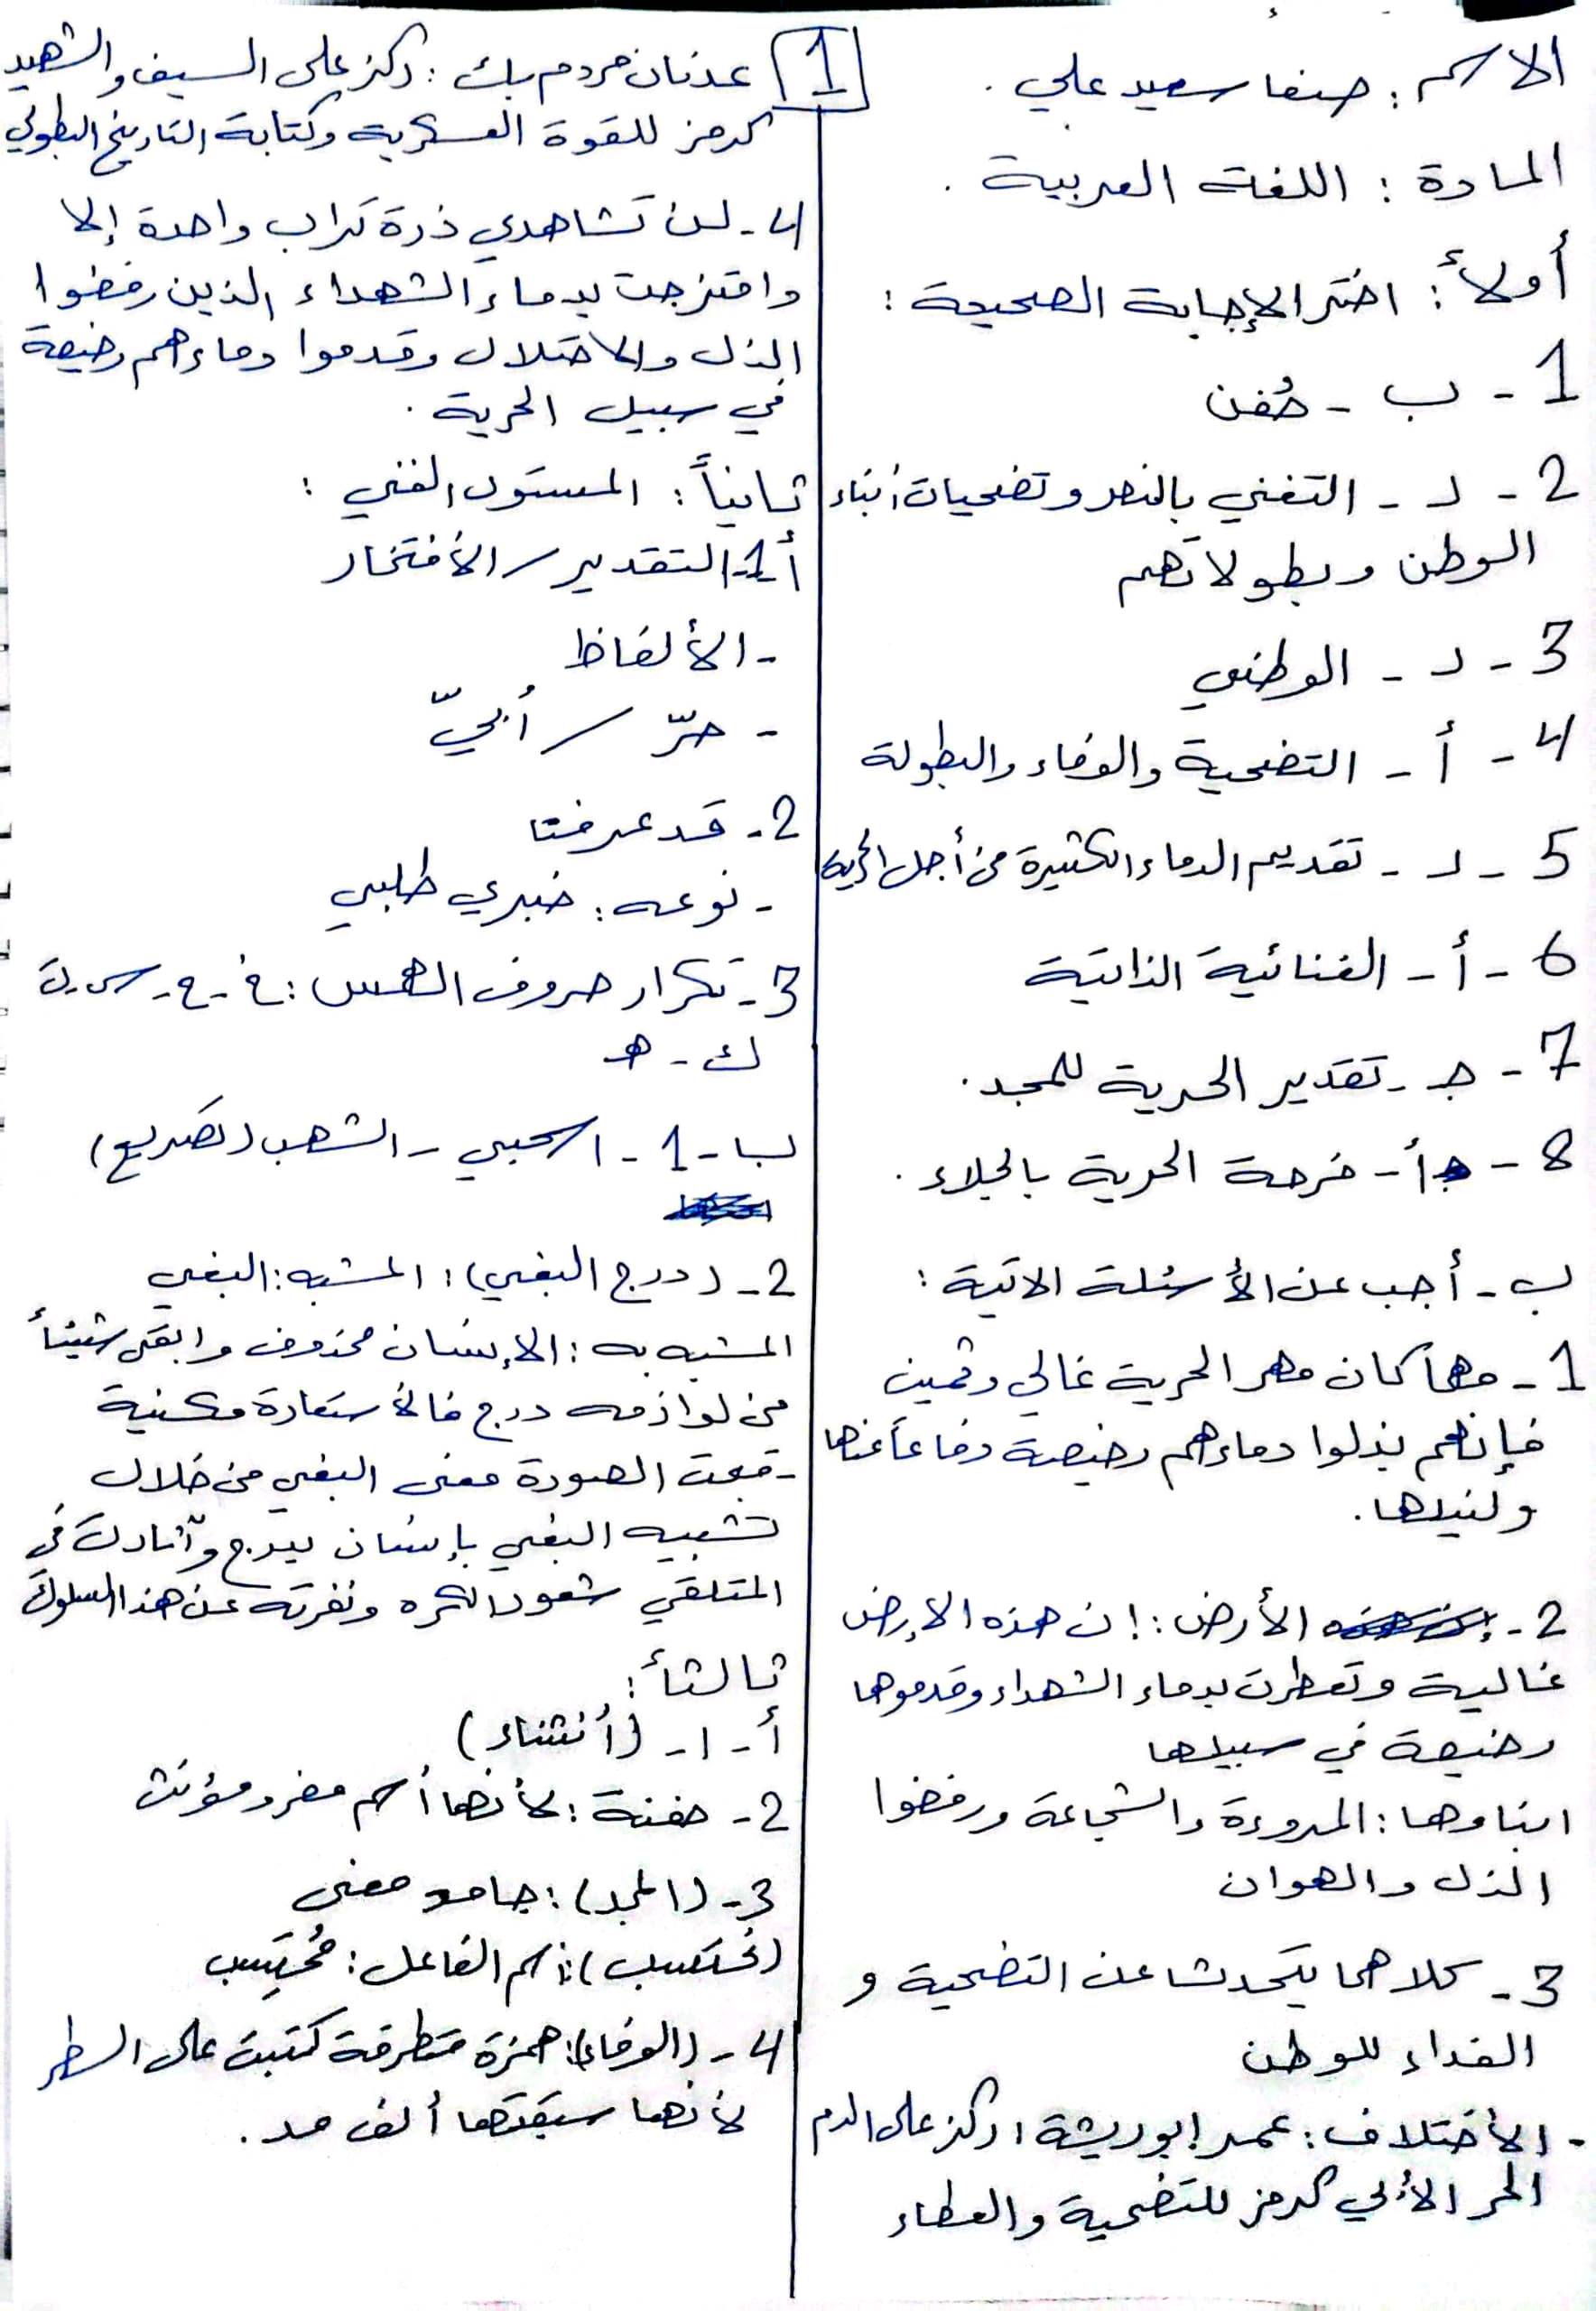 الاسم : صنعا سعيد علي .
المادة : اللغة العربية .
أولاً : اختر الإجابة الصحيحة :
1 - ب - حُفن
2 - د - التغني بالنصر وتضحيات أبناء
الوطن وبطولاتهم
3 - د - الوطني
4 - أ - التضحية والوفاء والبطولة
5 - د - تقديم الدماء الكثيرة من أجل الحرية
6 - أ - الغنائية الذاتية
7 - جـ - تقدير الحرية للمجد .
8 - أ - فرحة الحرية بالجلاء .
ب - أجب عن الأسئلة الاتية :
1 - مهما كان مهر الحرية غالي وثمين
فإنهم بذلوا دماءهم رخيصة دفاعاً عنها
ولنيلها .
2 - الأرض : إن هذه الارض
غالية وتعطرت بدماء الشهداء وقدموها
رخيصة في سبيلها
ابناوها : المروءة والشجاعة ورفضوا
الذل والهوان
3 - كلاهما يتحدثا عن التضحية و
الفداء للوطن
- الأختلاف : عمر ابو ريشة : ركز على الدم
الحر الأبي كرمز للتضحية والعطاء
1
عدنان مردم بك : ركز على السيف والشهيد
كرمز للقوة العسكرية وكتابة التاريخ البطولي
4 - لن تشاهدي ذرة تراب واحدة إلا
وامتزجت بدماء الشهداء الذين رفضوا
الذل والاحتلال وقدموا دماءهم رخيصة
في سبيل الحرية .
ثانياً : المستوى الفني :
أ 1 - التقدير / الأفتخار
- الألفاظ
- حرّ / أبيّ
2 - قد عرفتا
- نوعه : خبري طلبي
3 - تكرار حروف الهمس : ف - ح - س - ت
ك - هـ
ب - 1 - اسحبي - الشهب (تصريع)
2 - (درج البغي) : المشبه : البغي
المشبه به : الإنسان محذوف وابقى شيئاً
من لوازمه درج فالأستعارة مكنية
- قبحت الصورة معنى البغي من خلال
تشبيه البغي بإنسان يدرج وأثارت في
المتلقي شعور الكره ونفرته عن هذا السلوك
ثالثاً :
أ - 1 - (أنثناء)
2 - حفنة : لأنها أسم مفرد مؤنث
3 - (المجد) : جامد معنى
(نحتسب) : أسم الفاعل : مُحتَسِب
4 - (الوفاء) : همزة متطرفة كتبت على السطر
لأنها سبقتها ألف مد .